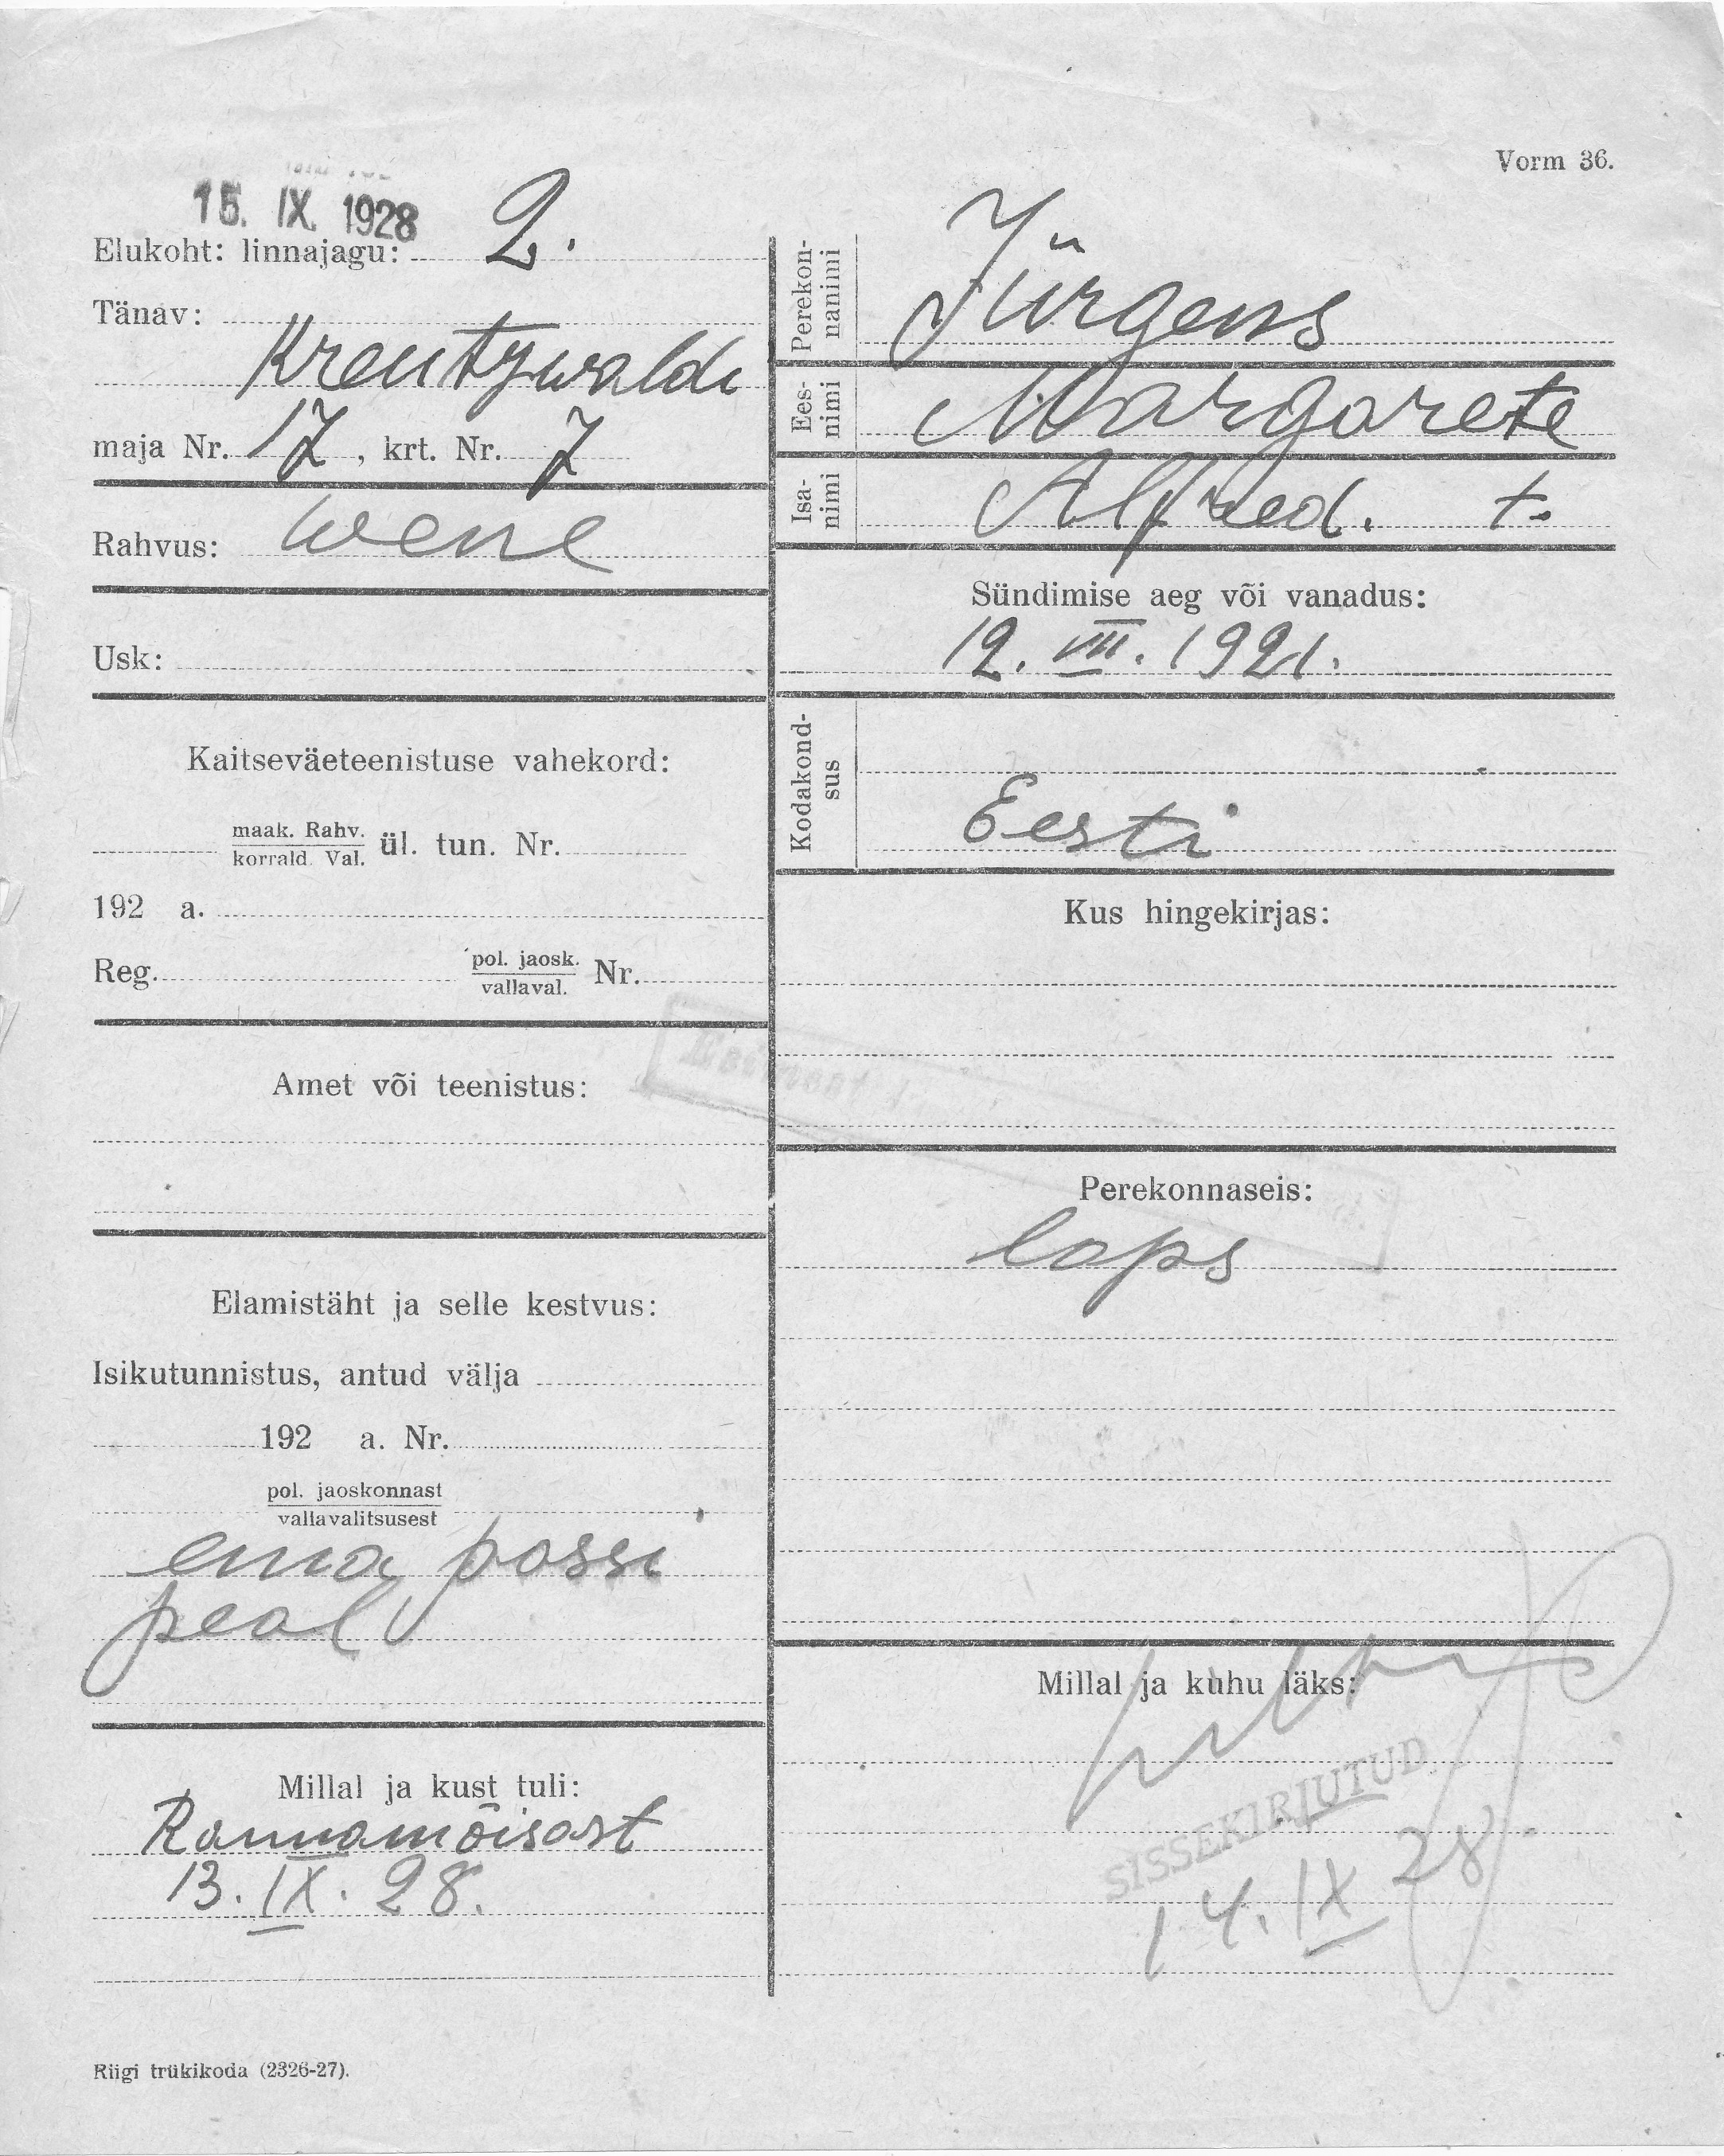 Vorm 36.
15. IX. 1928
Elukoht: linnajagu: 2.
Tänav:
Kreutzwaldi
maja Nr. 17, krt. Nr. 7
Rahvus: wene
Usk:
Kaitseväeteenistuse vahekord:
maak. Rahv.
korrald. Val. ül. tun. Nr.
192 a.
Reg. pol. jaosk.
vallaval. Nr.
Amet või teenistus:
Elamistäht ja selle kestvus:
Isikutunnistus, antud välja
192 a. Nr.
pol. jaoskonnast
vallavalitsusest
ema passi
peal
Millal ja kust tuli:
Rannamõisast
13. IX. 28.
Perekon-
nanimi
Jürgens
Ees-
nimi
Margarete
Isa-
nimi
Alfred. t.
Sündimise aeg või vanadus:
12. VIII. 1921.
Kodakond-
sus
Eesti
Kus hingekirjas:
Perekonnaseis:
laps
Millal ja kuhu läks:
SISSEKIRJUTUD
14. IX 28
Riigi trükikoda (2326-27).